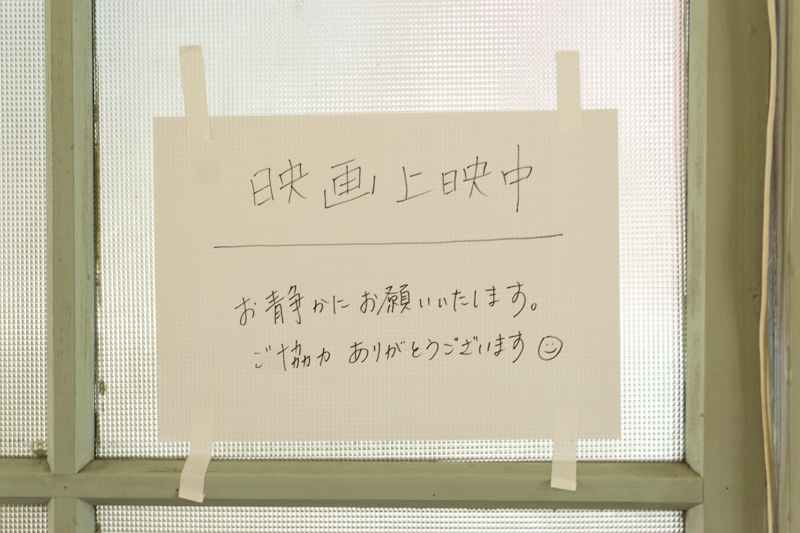 映画上映中
お静かにお願いいたします。
ご協力 ありがとうございます☺